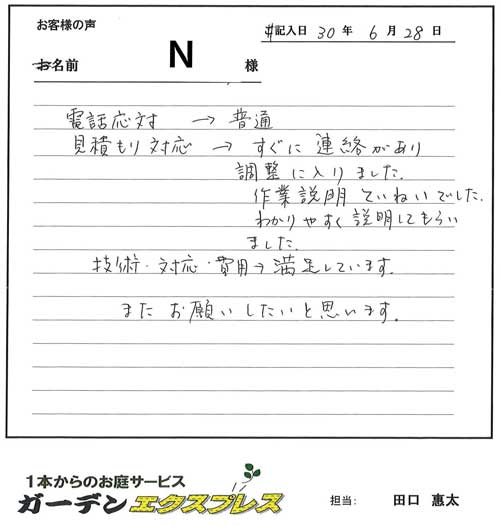 お客様の声
#記入日 30 年 6 月 28 日
お名前 N 様
電話応対 → 普通
見積もり対応 → すぐに連絡があり
調整に入りました。
作業説明ていねいでした。
わかりやすく説明してもらい
ました。
技術・対応・費用→満足しています。
またお願いしたいと思います。
1本からのお庭サービス
ガーデンエクスプレス
担当: 田口 惠太